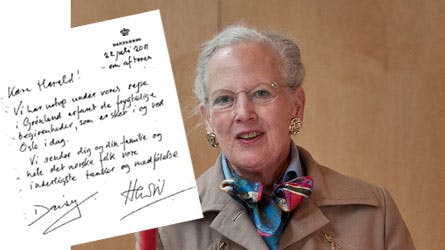 22 juli 2011
- om aftenen
Kære Harald!
Vi har netop under vores rejse
i Grønland erfaret de frygtelige
begivenheder, som er sket i og ved
Oslo i dag.
Vi sender dig og din familie og
hele det norske folk vore
inderligste tanker og medfølelse
Daisy